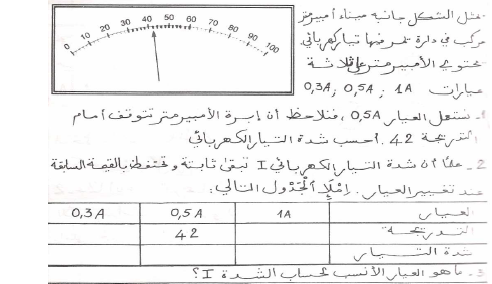 0 10 20 30 40 50 60 70 80 90 100
يمثل الشكل جانبه ميناء أمبيرمتر
مركب في دارة تمر فيها تيار كهربائي
يحتوي الأمبيرمتر على ثلاثة
عيارات 0,3A ; 0,5A ; 1A
1 - نستعمل العيار 0,5A ، فنلاحظ أن إبرة الأمبيرمتر تتوقف أمام
التدريجة 42 . أحسب شدة التيار الكهربائي
2 - علما أن شدة التيار الكهربائي I تبقى ثابتة و تحتفظ بالقيمة السابقة
عند تغيير العيار . إملإ الجدول التالي :
العيار 1A 0,5A 0,3A
التدريجة 42
شدة التيار
3 - ما هو العيار الأنسب لحساب الشدة I ؟